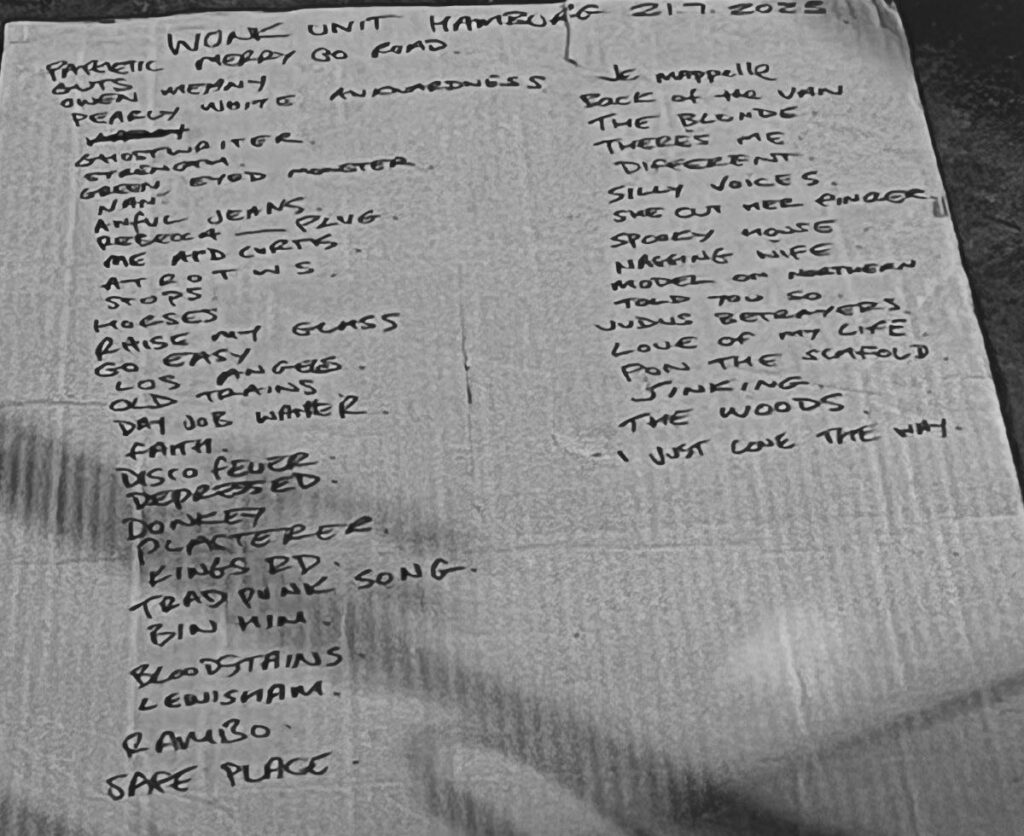 WONK UNIT HAMBURG 217. 2025
PATHETIC MERRY GO ROAD.
GUTS
OWEN MEANY
PEARLY WHITE AWKWARDNESS
GHOSTWRITER.
STRENGTH.
GREEN EYOD MONSTER.
NAN.
AWFUL JEANS.
REBECCA — PLUG.
ME AND CURTIS.
A T R O T W S.
STOPS.
HORSES
RAISE MY GLASS
GO EASY
LOS ANGELES.
OLD TRAINS
DAY JOB WANKER.
FAITH.
DISCO FEVER.
DEPRESSED.
DONKEY
PLASTERER.
KINGS RD.
TRAD PUNK SONG.
BIN HIM.
BLOODSTAINS.
LEWISHAM.
RAMBO.
SAFE PLACE.
JE MAPPELLE
BACK OF THE VAN
THE BLONDE.
THERES ME.
DIFFERENT.
SILLY VOICES.
SHE CUT HER FINGER
SPOOKY HOUSE
NAGGING WIFE
MODEL ON NORTHERN
TOLD YOU SO.
JUDUS BETRAYERS.
LOVE OF MY LIFE
PON THE SCAFOLD.
SINKING.
THE WOODS.
I JUST LOVE THE WAY.